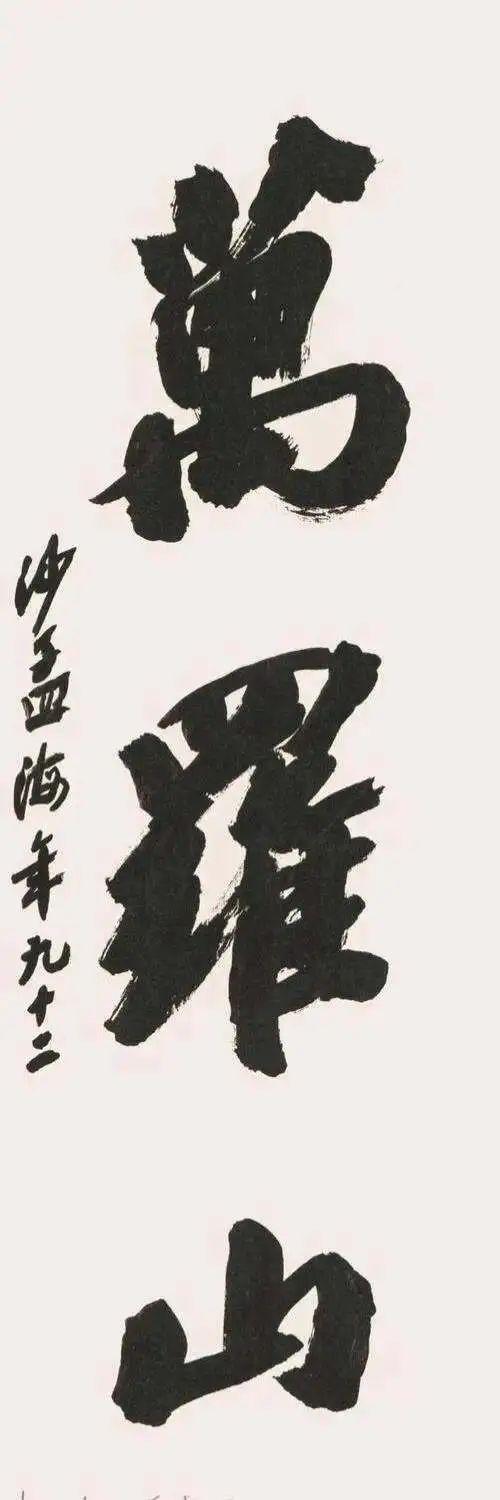 萬羅山
沙孟海年九十二